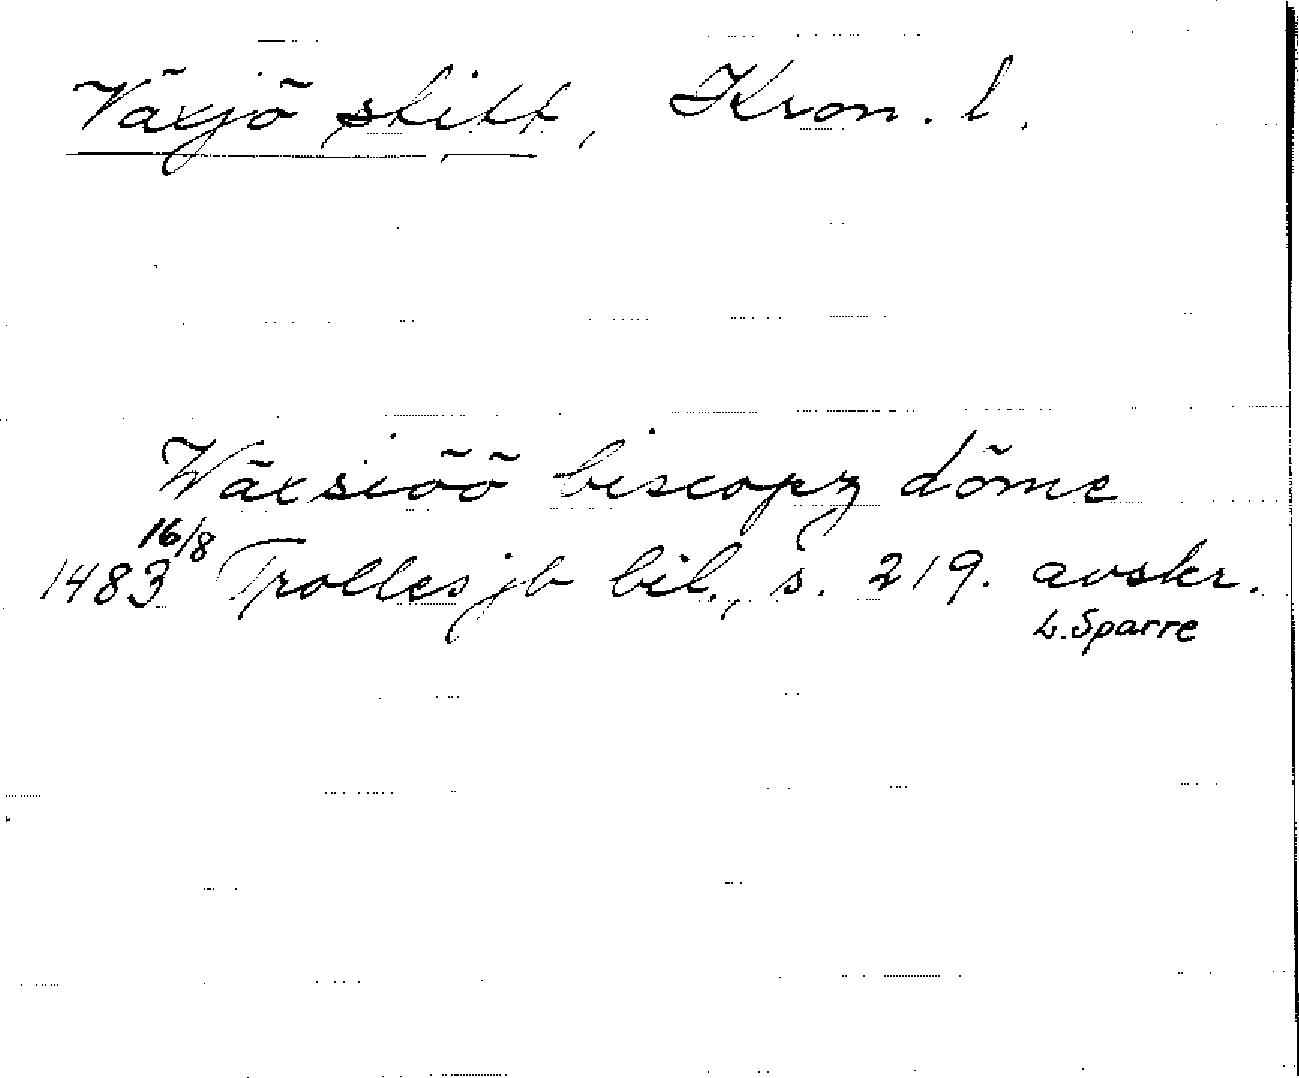 Växjö stift, Kron. l.
Wäxsiöö biscopz döme
16/8
1483 Trolles jb bil., s. 219. avskr.
L. Sparre